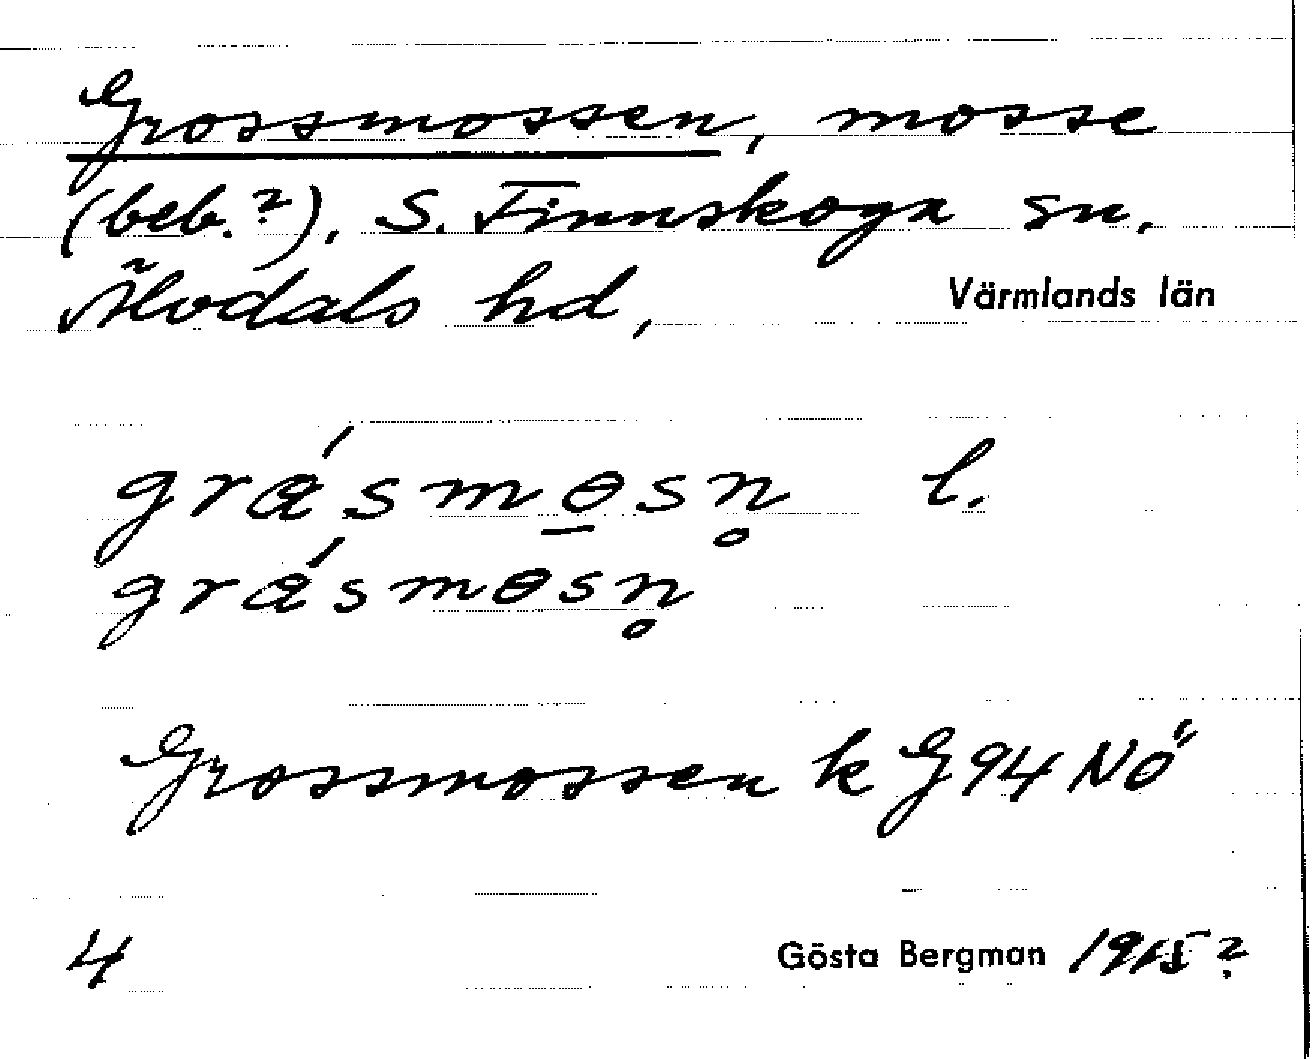 Grossmossen, mosse
(beb.?), S. Finnskoga sn,
Älvdals hd, Värmlands län
grɑ́smɵ̠sn̥ l.
grɑ́smɵsn̥
Grossmossen k G94 NÖ
4 Gösta Bergman 1915?